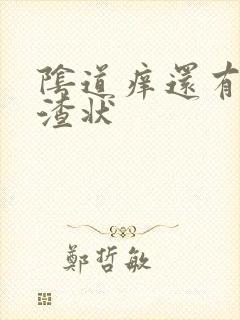 陰道痒還有
渣狀
鄭哲敏